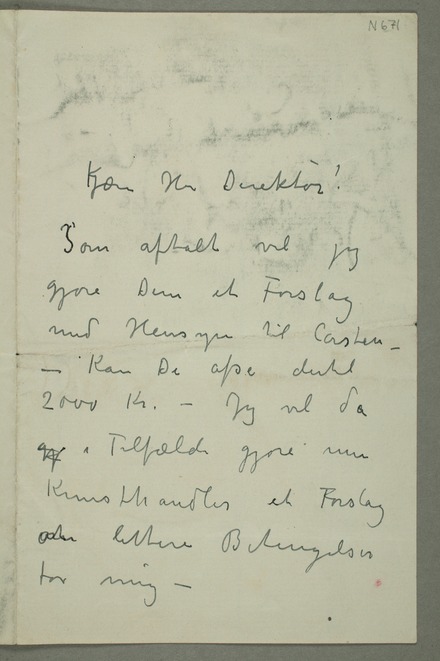 N 671
Kjære Hr Direktör!
Som aftalt vil jeg
gjøre Dem et Forslag
med Hensyn til Carsten –
– Kan De afse dertil
2000 Kr. – Jeg vil da
i Tilfælde gjøre min
Kunsthandler et Forslag
om lettere Betingelser
for mig –